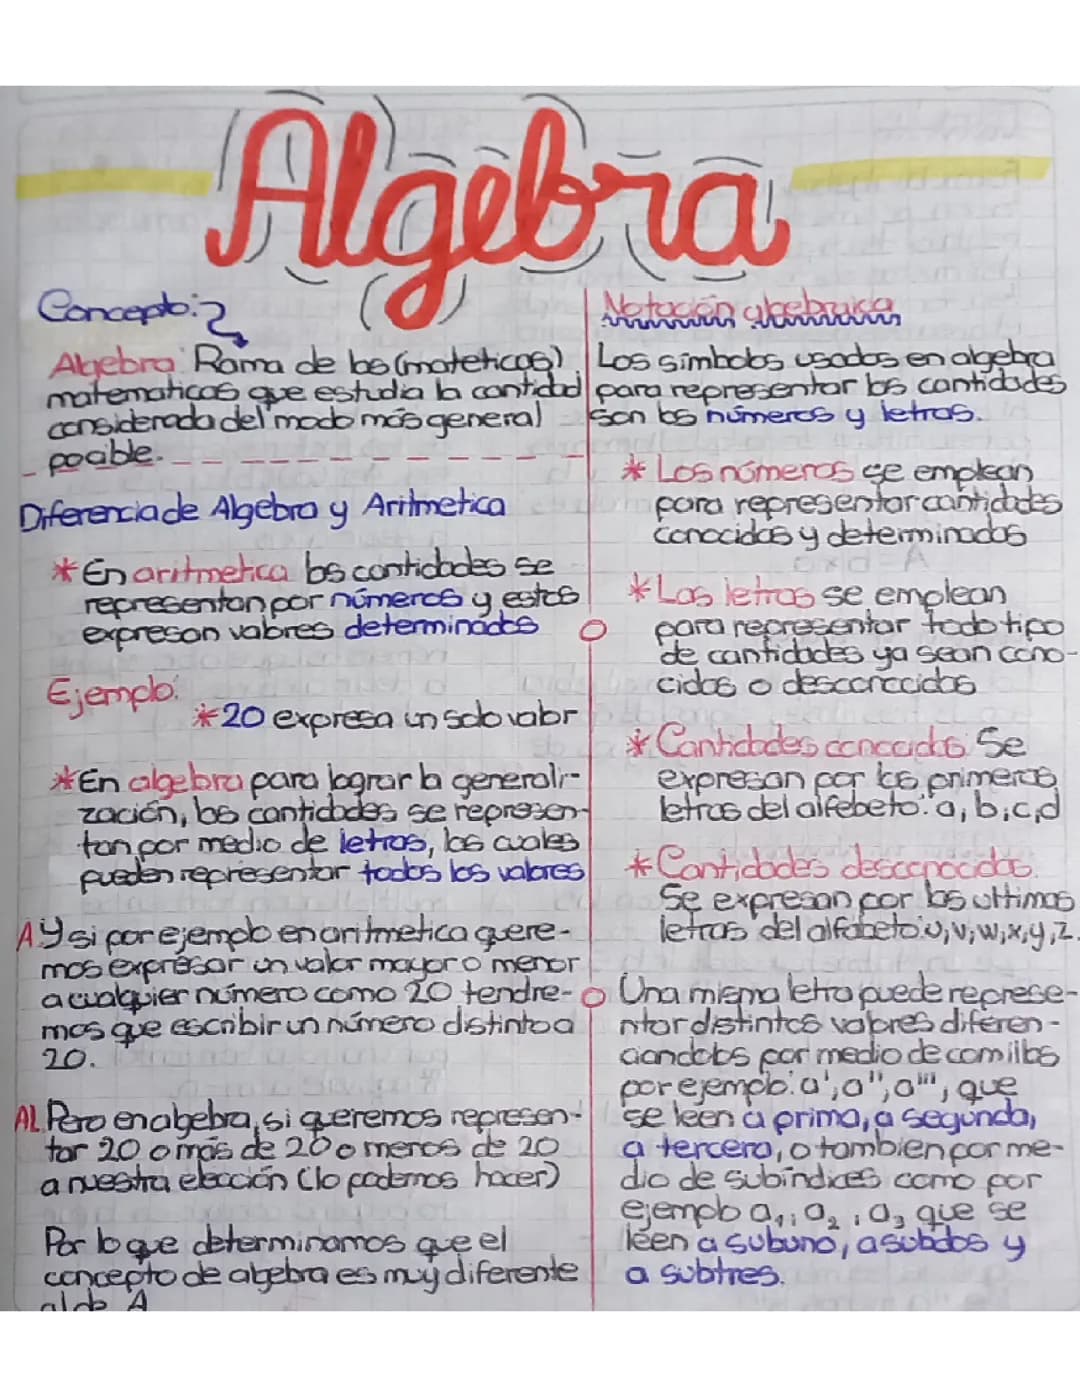 Algebra
Concepto:
Algebra: Rama de las (mateticas)
matematicas que estudia la cantidad
considerada del modo más general
posible.
Diferencia de Algebra y Aritmetica
* En aritmetica las cantidades se
representan por números y estos
expresan valores determinados
Ejemplo:
* 20 expresa un solo valor
* En algebra para lograr la generali-
zación, las cantidades se represen-
tan por medio de letras, las cuales
pueden representar todos los valores
A Y si por ejemplo en aritmetica quere-
mos expresar un valor mayor o menor
a cualquier número como 20 tendre-
mos que escribir un número distinto a
20.
AL Pero en algebra, si queremos represen-
tar 20 o más de 20 o menos de 20
a nuestra elección (lo podemos hacer)
Por lo que determinamos que el
concepto de algebra es muy diferente
al de A
Notación algebraica
Los símbolos usados en algebra
para representar las cantidades
son los números y letras.
* Los números se emplean
para representar cantidades
conocidas y determinadas
* Las letras se emplean
para representar todo tipo
de cantidades ya sean cono-
cidas o desconocidas
* Cantidades conocidas Se
expresan por las primeras
letras del alfebeto: a, b, c, d
* Cantidades desconocidas.
Se expresan por las ultimas
letras del alfabeto: u, v, w, x, y, z.
Una misma letra puede represe-
ntar distintos valores diferen-
ciandolos por medio de comillas
por ejemplo: a', a'', a''', que
se leen a prima, a segunda,
a tercera, o tambien por me-
dio de subíndices como por
ejemplo a₁, a₂, a₃ que se
leen a subuno, a subdos y
a subtres.